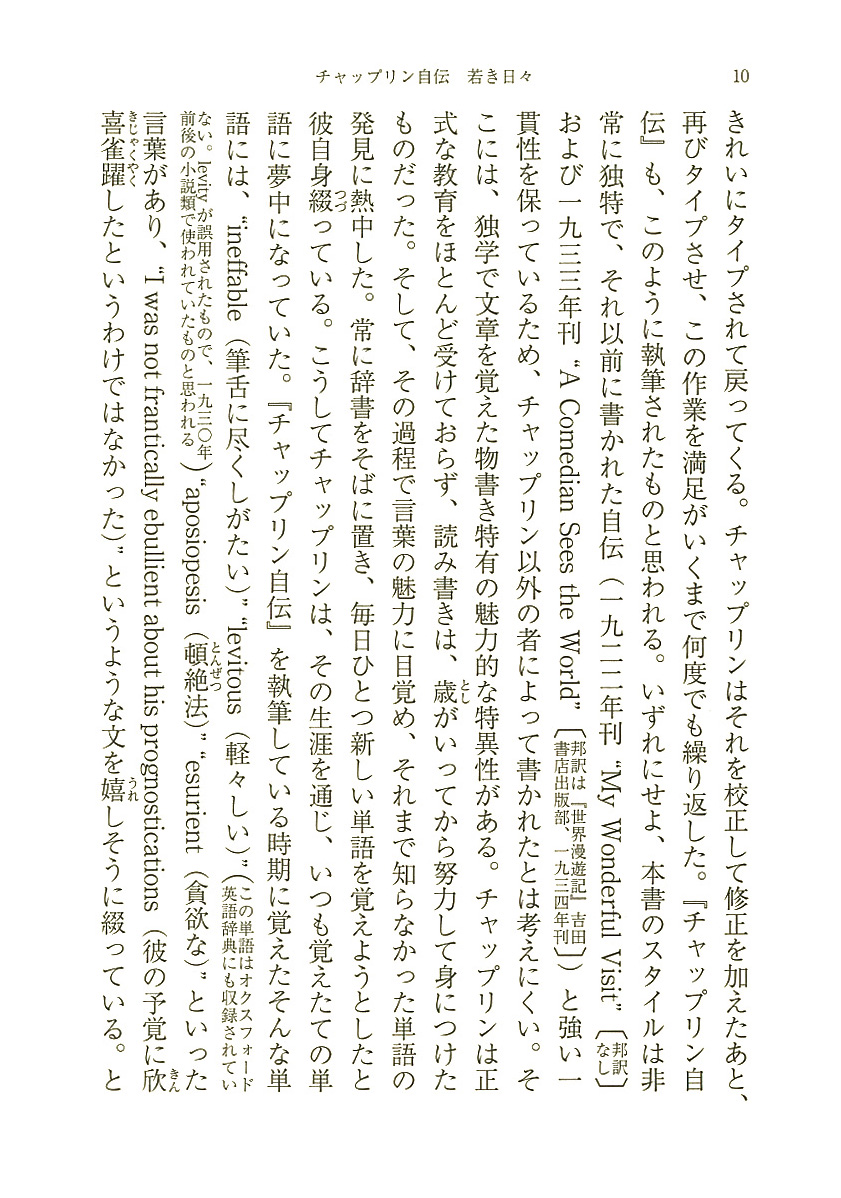 チャップリン自伝　若き日々
10
きれいにタイプされて戻ってくる。チャップリンはそれを校正して修正を加えたあと、
再びタイプさせ、この作業を満足がいくまで何度でも繰り返した。『チャップリン自
伝』も、このように執筆されたものと思われる。いずれにせよ、本書のスタイルは非
常に独特で、それ以前に書かれた自伝（一九二二年刊 “My Wonderful Visit”〔邦訳なし〕
および一九三三年刊 “A Comedian Sees the World”〔邦訳は『世界漫遊記』吉田書店出版部、一九三四年刊〕）と強い一
貫性を保っているため、チャップリン以外の者によって書かれたとは考えにくい。そ
こには、独学で文章を覚えた物書き特有の魅力的な特異性がある。チャップリンは正
式な教育をほとんど受けておらず、読み書きは、歳がいってから努力して身につけた
ものだった。そして、その過程で言葉の魅力に目覚め、それまで知らなかった単語の
発見に熱中した。常に辞書をそばに置き、毎日ひとつ新しい単語を覚えようとしたと
彼自身綴っている。こうしてチャップリンは、その生涯を通じ、いつも覚えたての単
語に夢中になっていた。『チャップリン自伝』を執筆している時期に覚えたそんな単
語には、“ineffable（筆舌に尽くしがたい）” “levitous（軽々しい）”（この単語はオクスフォード英語辞典にも収録されてい
ない。levityが誤用されたもので、一九三〇年前後の小説類で使われていたものと思われる）“aposiopesis（頓絶法）” “esurient（貪欲な）” といった
言葉があり、“I was not frantically ebullient about his prognostications（彼の予覚に欣
喜雀躍したというわけではなかった）” というような文を嬉しそうに綴っている。と